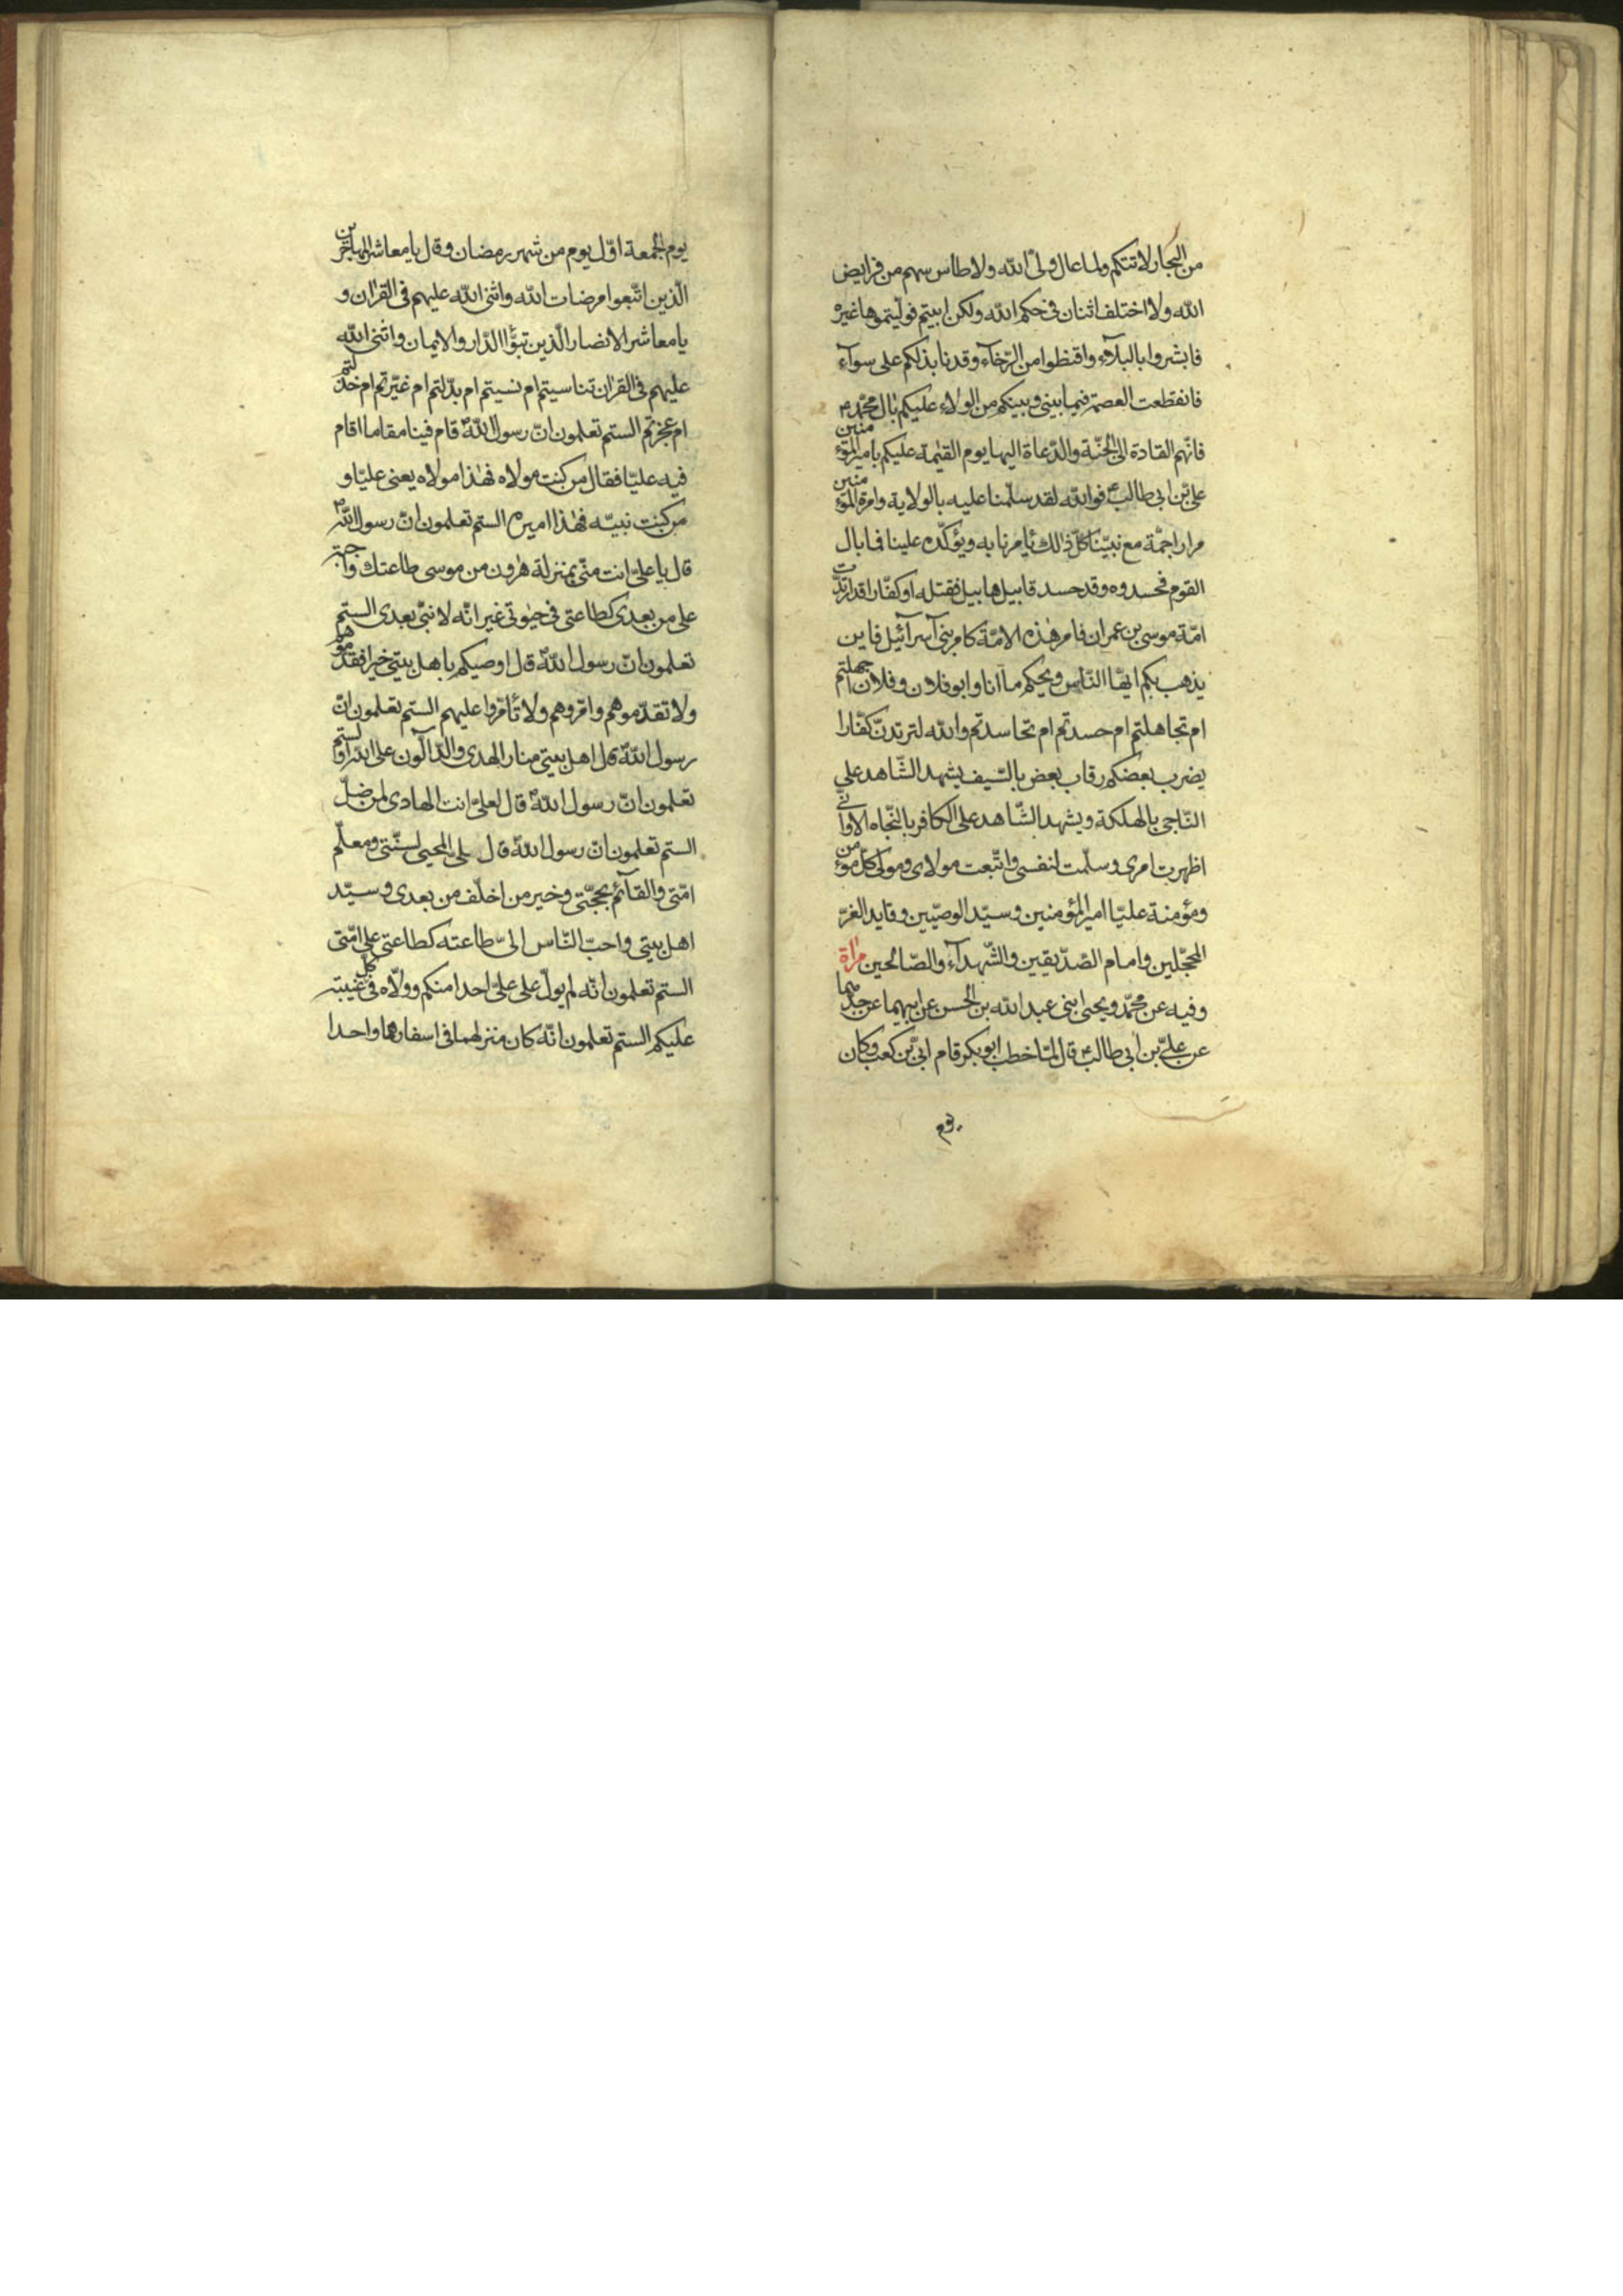 من البحار لاتتكم ولما عال ولىّ الله ولا طاس سهم من فرايض
الله ولا اختلف اثنان فى حكم الله ولكن ابيتم فولّيتموها غيره
فابشروا بالبلآء واقنطوا من الرّخآء وقد نابذتكم على سوآء
فانقطعت العصمة فيما بينى وبينكم من الولاء عليكم بال محمّد م
فانّهم القادة الى الجنّة والدّعاة اليها يوم القيٰمة عليكم بامير المؤمنين
علىّ بن ابى طالبؑ فوالله لقد سلّمنا عليه بالولاية وامرة المؤمنين
مرارا جمّة مع نبيّنا كلّ ذٰلك يامرنا به ويؤكّده علينا فما بال
القوم فحسدوه وقد حسد قابيل هابيل فقتله او كفّارا قد ارتدّت
امّة موسى بن عمران فامر هٰذه الامّة كامر بنى آسرآئيل فاين
يذهب بكم ايّها النّاس ويحكم مآ انا وابو فلان وفلان اجهلتم
ام تجاهلتم ام حسدتم ام تحاسدتم والله لترتدنّ كفّارا
يضرب بعضكم رقاب بعض بالسّيف يشهد الشّاهد على
النّاجى بالهلكة ويشهد الشّاهد على الكافر بالنّجاه الا وانّى
اظهرت امرى وسلّمت لنفسى واتّبعت مولاى ومولى كلّ مؤمن
ومؤمنة عليّا امير المؤمنين وسيّد الوصيّين وقايد الغرّ
المحجّلين وامام الصّدّيقين والشّهدآء والصّالحين مراة
وفيه عن محمّد ويحيى ابنى عبد الله بن الحسن عن ابيهما عن جدّهما
عن علىّ بن ابى طالبؑ قال لمّا خطب ابو بكر قام ابىّ بن كعب وكان
يوم
يوم الجمعة اوّل يوم من شهر رمضان وقال يا معاشر المهاجرين
الّذين اتّبعوا مرضات الله واثنى الله عليهم فى القرٰان و
يا معاشر الانصار الّذين تبوّؤا الدّار والايمان واثنى الله
عليهم فى القرٰان تناسيتم ام نسيتم ام بدّلتم ام غيّرتم ام خذلتم
ام عجزتم الستم تعلمون انّ رسول اللهؐ قام فينا مقاما اقام
فيه عليّا فقال من كنت مولاه فهٰذا مولاه يعنى عليّا و
من كنت نبيّه فهٰذا اميره الستم تعلمون انّ رسول اللهؐ
قال يا علىّ انت منّى بمنزلة هٰرون من موسى طاعتك واجبة
على من بعدى كطاعتى فى حيٰوتى غير انّه لا نبىّ بعدى الستم
تعلمون انّ رسول اللهؐ قال اوصيكم باهل بيتى خيرا فقدّموهم
ولا تقدّموهم وامّروهم ولا تٔامّروا عليهم الستم تعلمون انّ
رسول اللهؐ قال اهل بيتى منار الهدى والدّآلّون على الله اولستم
تعلمون انّ رسول اللهؐ قال لعلىّ انت الهادى لمن ضلّ
الستم تعلمون انّ رسول اللهؐ قال علىّ المحيى لسنّتى ومعلّم
امّتى والقآئم بحجّتى وخير من اخلّف من بعدى وسيّد
اهل بيتى واحبّ النّاس الىّ طاعته كطاعتى على امّتى
الستم تعلمون انّه لم يولّ على علىّ احدا منكم وولّاه فى كلّ غيبته
عليكم الستم تعلمون انّه كان منزلهما فى اسفارهما واحدا